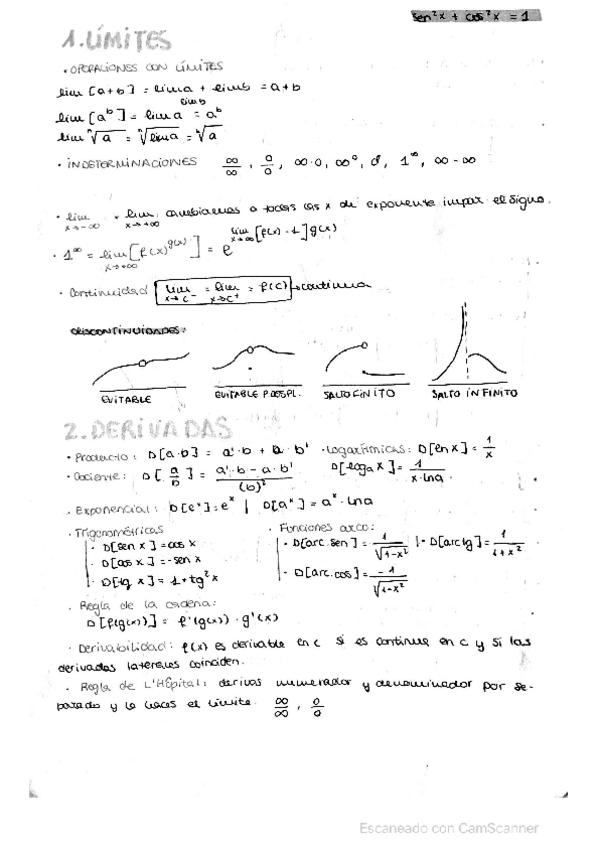 sen²x + cos²x = 1
1. LÍMITES
· OPERACIONES CON LÍMITES
lim [a+b] = lim a + lim b = a+b
lim [a^b] = lim a^lim b = a^b
lim ⁿ√a = ⁿ√lim a = ⁿ√a
· INDETERMINACIONES ∞/∞, 0/0, ∞·0, ∞⁰, 0⁰, 1^∞, ∞-∞
· lim x→-∞ = lim x→+∞, cambiamos a todas las x de exponente impar el signo.
· 1^∞ = lim x→+∞ [f(x)^g(x)] = e^lim x→∞ [f(x)-1]g(x)
· Continuidad lim x→c⁻ = lim x→c⁺ = f(c) → continua
DISCONTINUIDADES:
EVITABLE EVITABLE P.DESPL. SALTO FINITO SALTO INFINITO
2. DERIVADAS
· Producto: D[a·b] = a'·b + a·b' · Logarítmicas: D[ln x] = 1/x
· Cociente: D[a/b] = a'·b - a·b' / (b)² D[loga x] = 1/x·lna
· Exponencial: D[e^x] = e^x | D[a^x] = a^x·lna
· Trigonométricas · Funciones arco:
· D[sen x] = cos x · D[arc.sen] = 1/√1-x² | · D[arc tg] = 1/1+x²
· D[cos x] = -sen x
· D[tg x] = 1+tg²x · D[arc.cos] = -1/√1-x²
· Regla de la cadena:
D[f(g(x))] = f'(g(x))·g'(x)
· Derivabilidad: f(x) es derivable en c si es continua en c y si las
derivadas laterales coinciden.
· Regla de L'Hôpital: derivas numerador y denominador por se-
parado y le haces el límite. ∞/∞, 0/0
Escaneado con CamScanner